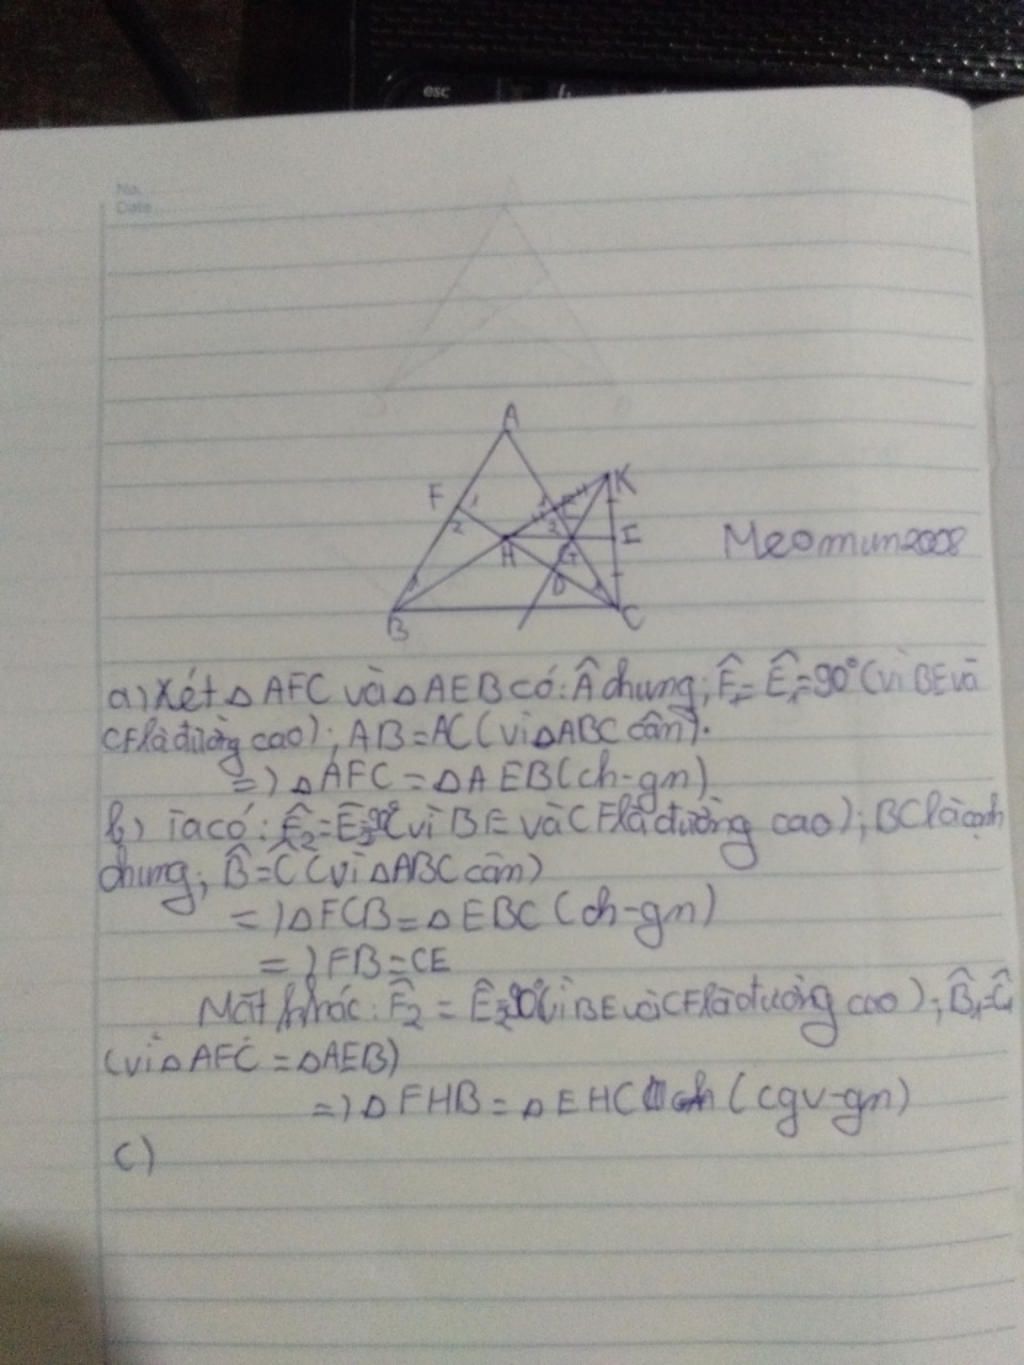 esc
No.
Date
A
F
1
1
E
K
2
2
H
G
I
D
1
1
B
C
Meomun2008
a) Xét △ AFC và △ AEB có: Â chung; F̂₁ = Ê₁ = 90° (vì BE và
CF là đường cao); AB = AC (vì △ABC cân).
=) △ AFC = △ AEB (ch-gn)
b) Ta có: F̂₂ = Ê₂ = 90° (vì BE và CF là đường cao); BC là cạnh
chung; B̂ = Ĉ (vì △ABC cân)
=) △ FCB = △ EBC (ch-gn)
=) FB = CE
Mặt khác: F̂₂ = Ê₂ = 90° (vì BE và CF là đường cao); B̂₁ = Ĉ₁
(vì △ AFC = △AEB)
=) △ FHB = △ EHC (cgv-gn)
c)